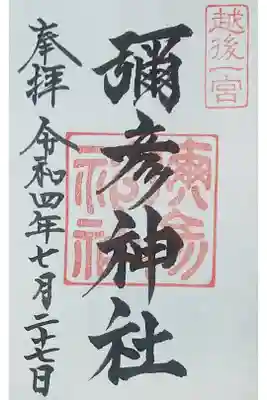 越後一宮
彌彦神社
奉拝
令和四年七月二十七日